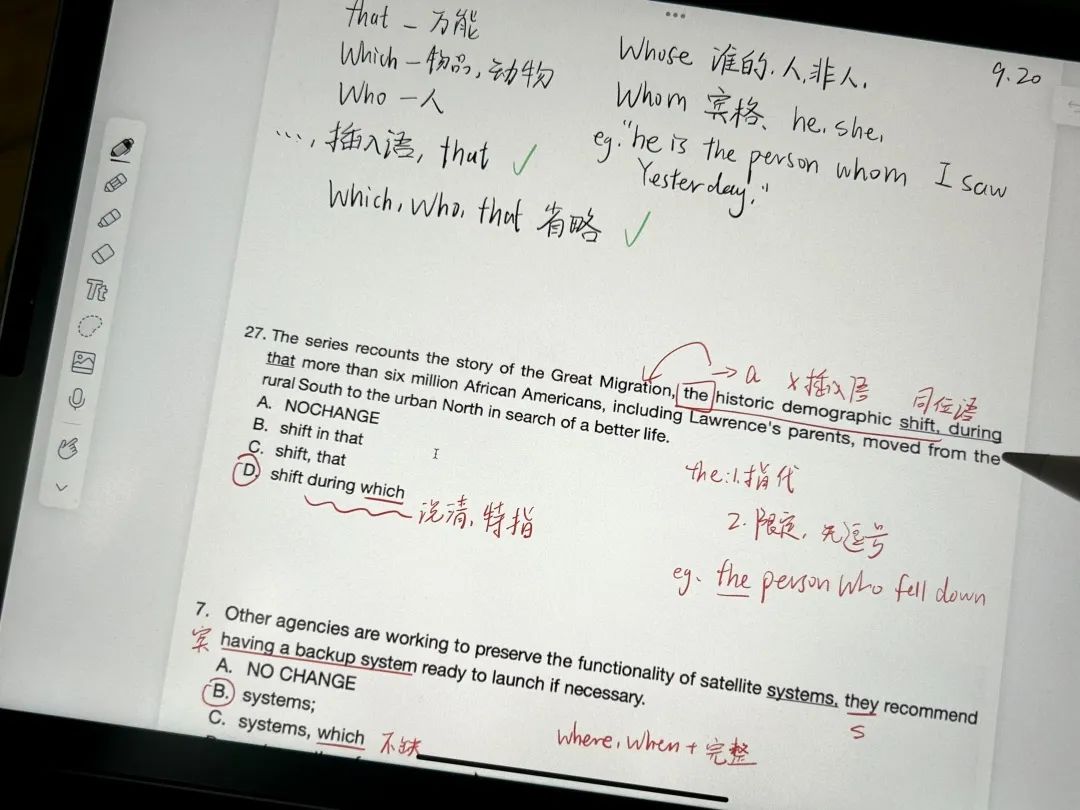 that - 万能
Which - 物品, 动物
Who - 人
..., 插入语, that ✓
Which, Who, that 省略 ✓
9.20
Whose 谁的, 人, 非人,
Whom 宾格、he, she,
eg. "he is the person whom I saw
Yesterday."
27. The series recounts the story of the Great Migration, the historic demographic shift, during
that more than six million African Americans, including Lawrence's parents, moved from the
rural South to the urban North in search of a better life.
→ a ×插入语 同位语
A. NOCHANGE
B. shift in that
C. shift, that
D. shift during which
说清, 特指
the: 1. 指代
2. 限定, 无逗号
eg. the person who fell down
7. Other agencies are working to preserve the functionality of satellite systems, they recommend
宾 having a backup system ready to launch if necessary.
S
A. NO CHANGE
B. systems;
C. systems, which 不缺
where, when + 完整
Tt